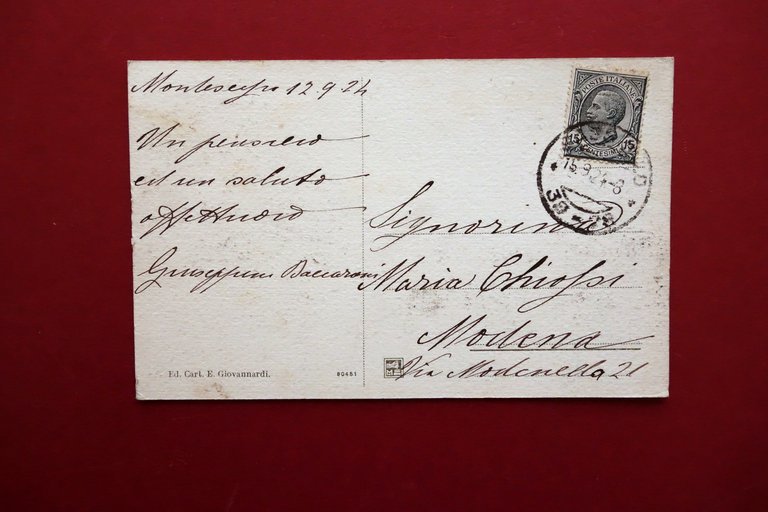 Montescapo 12.9.24
Un pensiero
ed un saluto
affettuoso
Giuseppina Baccarani
Ed. Cart. E. Giovannardi.
80451
POSTE ITALIANE
15 CENTESIMI 15
15.9.24-8
39-28
Signorina
Maria Chiossi
Modena
Via Modenella 21